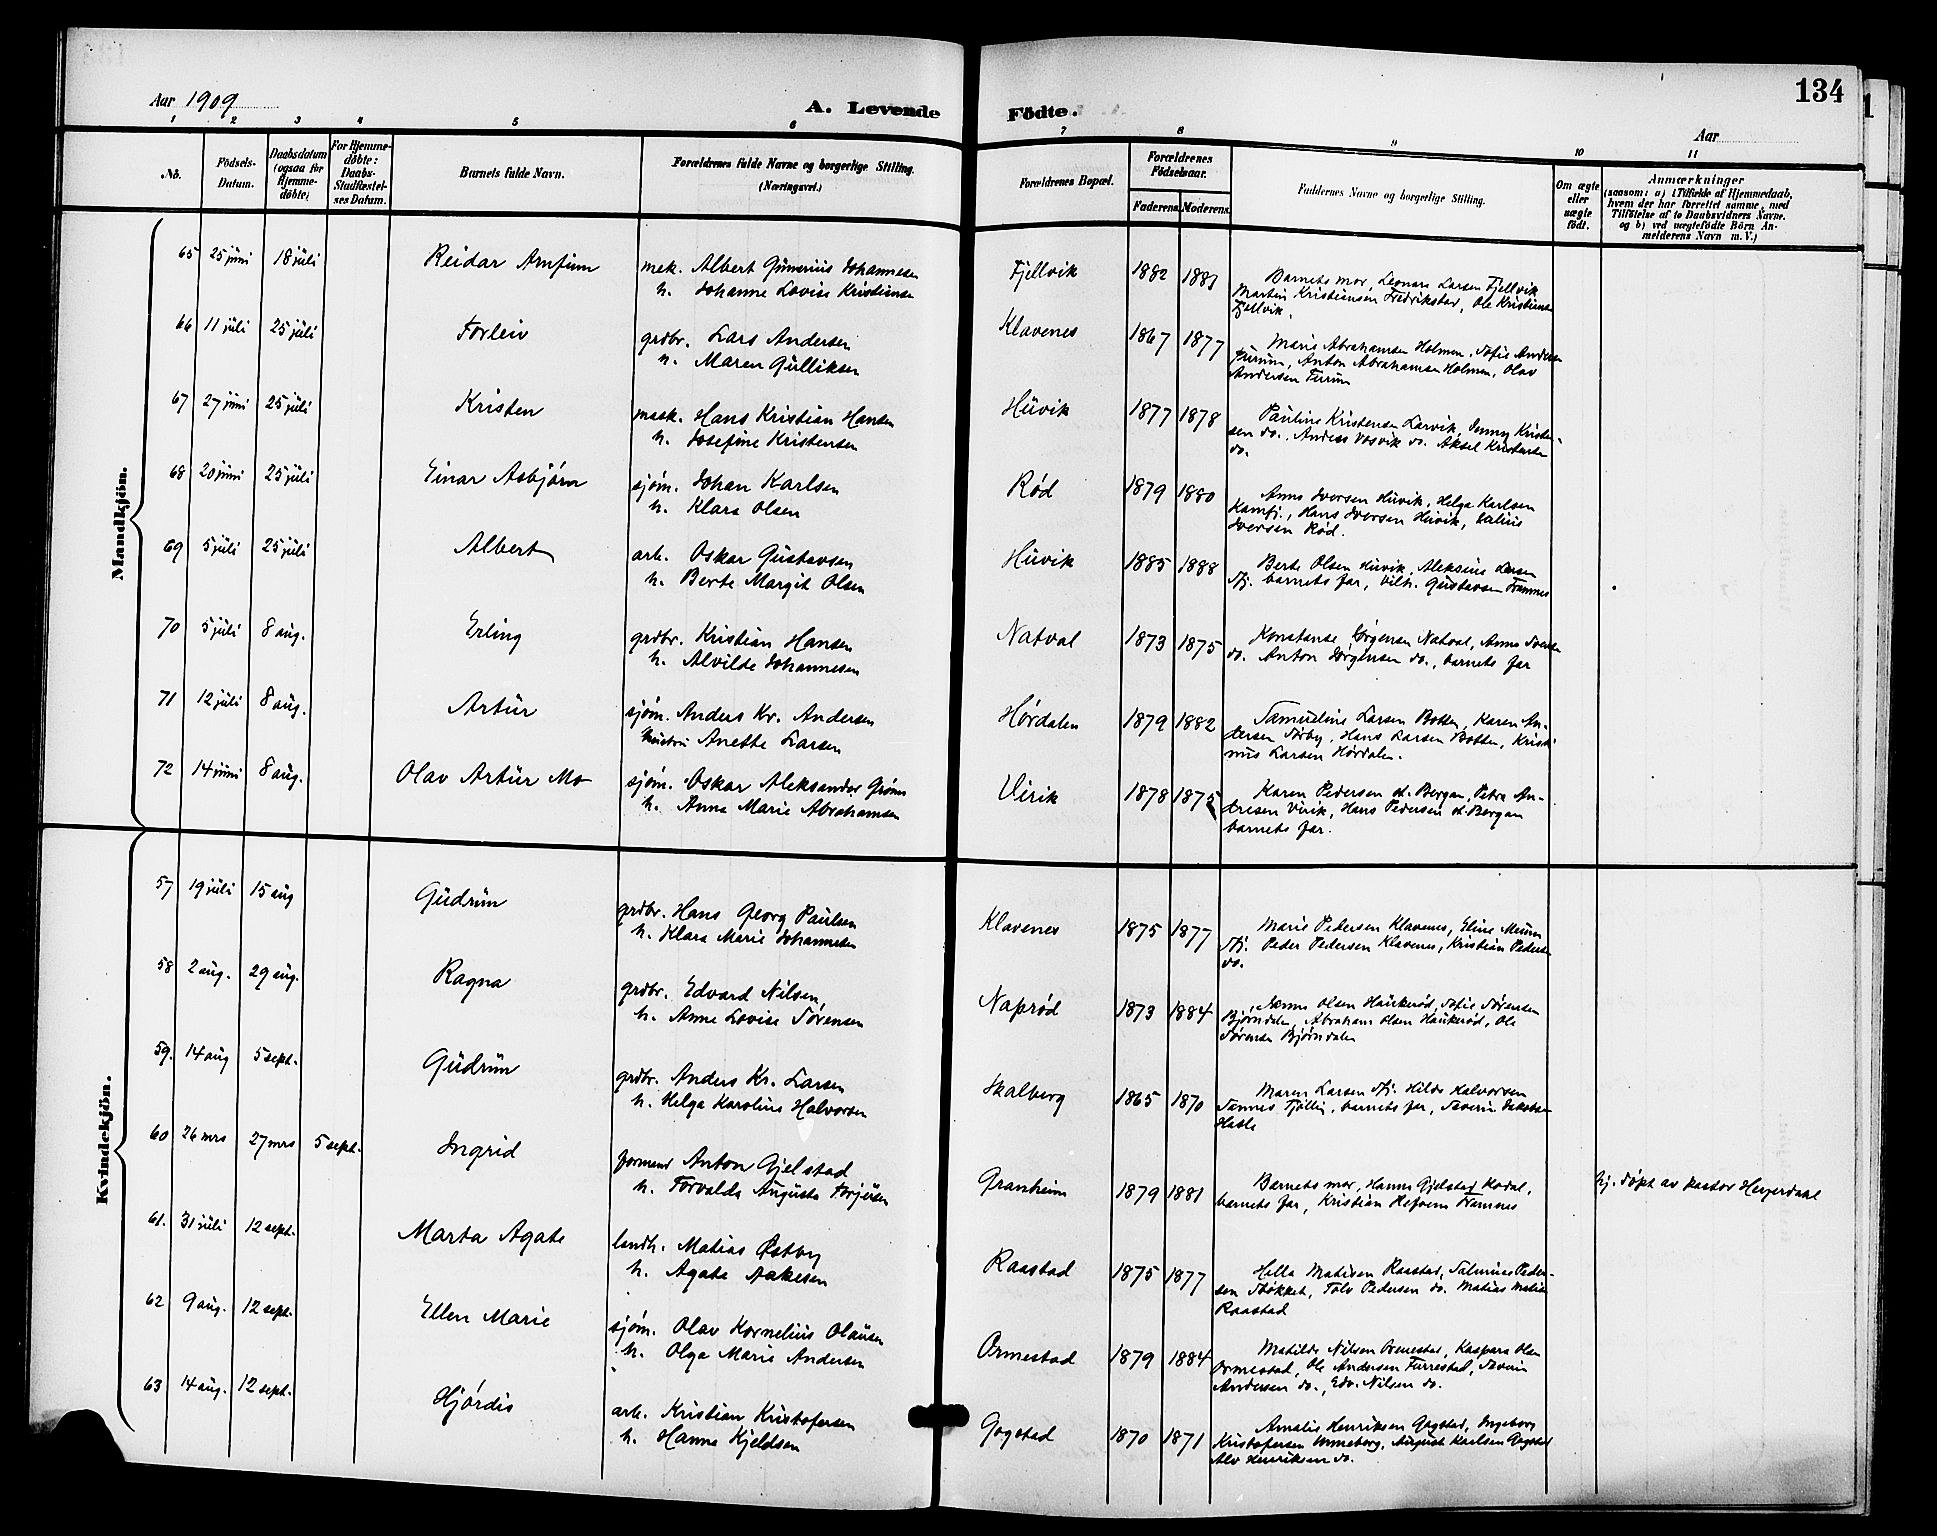 134
Aar 1909
A. Levende Födte.
Aar
1 2 3 4 5 6 7 8 9 10 11
No.
Födsels-Datum.
Daabsdatum (ogsaa for Hjemmedöbte)
For Hjemmedöbte: Daabs-Stadfæstelses Datum.
Barnets fulde Navn.
Forældrenes fulde Navne og borgerlige Stilling. (Næringsvei.)
Forældrenes Bopæl.
Forældrenes Födselsaar.
Faderens. Moderens.
Faddernes Navne og borgerlige Stilling.
Om ægte eller uægte födt.
Anmærkninger
(saasom: a) i Tilfælde af Hjemmedaab, hvem der har forrettet samme, med Tilföielse af to Daabsvidners Navne. og b) ved uægtefödte Börn Anmelderens Navn m. V.)
Mandkjön.
65 25 juni 18 juli Reidar Arnfinn mek. Albert Gunerius Johannesen Fjellvik 1882 1881 Barnets mor, Leonara Larsen Fjellvik
h. Johanne Lovise Kristiansen Martin Kristiansen Fredrikstad, Ole Kristiansen
Fjellvik.
66 11 juli 25 juli Torleiv grdbr. Lars Andersen Klavenes 1867 1877 Marie Abrahamsen Holmen, Sofie Andersen
h. Maren Gulliksen Furum, Anton Abrahamsen Holmen, Olav
Andersen Furum
67 27 juni 25 juli Kristen mask. Hans Kristian Hansen Huvik 1877 1878 Pauline Kristensen Larvik, Jenny Kristen-
h. Josefine Kristensen sen do., Anders Vasvik do. Aksel Kristensen
do.
68 20 juni 25 juli Einar Asbjørn sjøm. Johan Karlsen Rød 1879 1880 Anna Iversen Huvik, Helga Karlsen
h. Klara Olsen Kamfj., Hans Iversen Huvik, Julius
Iversen Rød.
69 5 juli 25 juli Albert arb. Oskar Gustavsen Huvik 1885 1888 Berte Olsen Huvik, Aleksius Larsen
h. Berte Margit Olsen Sfj. barnets far, Vilh. Gustavsen Framnes
70 5 juli 8 aug. Erling grdbr. Kristian Hansen Natval 1873 1875 Konstanse Jørgensen Natval, Anna Iversen
h. Alvilde Johannesen do. Anton Jørgensen do., barnets far
71 12 juli 8 aug. Artur sjøm. Anders Kr. Andersen Hørdalen 1879 1882 Samueline Larsen Botten, Karen An-
hustru Anette Larsen dersen Torby, Hans Larsen Botten, Kristi
nus Larsen Hørdalen.
72 14 juni 8 aug. Olav Artur Mo sjøm. Oskar Aleksander Grønn Virik 1878 1875 Karen Pedersen st. Bergan, Petra An-
h. Anna Marie Abrahamsen dresen Virik, Hans Pedersen st. Bergan
barnets far.
Kvindekjön.
57 19 juli 15 aug Gudrun grdbr. Hans Georg Paulsen Klavenes 1875 1877 Marie Pedersen Klavenes, Eline Muum
h. Klara Marie Johannesen Sfj. Peder Pedersen Klavenes, Kristian Pedersen
do.
58 2 aug. 29 aug. Ragna grdbr. Edvard Nilsen, Naprød 1873 1884 Anna Olsen Haukerød, Sofie Sørensen
h. Anne Lovise Sørensen Bjørndalen, Abraham Olsen Haukerød, Ole
Sørensen Bjørndalen
59. 14 aug 5 sept. Gudrun grdbr. Anders Kr. Larsen Skalberg 1865 1870 Maren Larsen Sfj. Hilda Halvorsen
h. Helga Karoline Halvorsen Sannes Tjølling, barnets far, Severin Jakobsen
Hasle
60 26 mrs 27 mrs 5 sept. Ingrid formend Anton Gjelstad Granheim 1879 1881 Barnets mor, Hanna Gjelstad Kodal, hj. døpt av pastor Heyerdahl
h. Torvalda Augusta Torjusen barnets far, Kristian Refvem Framnes
61. 31 juli 12 sept. Marta Agate landh. Matias Østby Raastad 1875 1877 Hella Matisen Raastad, Salmine Peder-
h. Agate Aakesen sen Støkket, Tolv Pedersen do. Matias Matisen
Raastad
62 9 aug. 12 sept. Ellen Marie sjøm. Olav Kornelius Olausen Ormestad 1879 1884 Matilde Nilsen Ormestad, Kaspara Olsen
h. Olga Marie Andersen Ormestad, Ole Andersen Furrestad, Severin
Andersen do., Edv. Nilsen do.
63 14 aug. 12 sept. Hjørdis arb. Kristian Kristofersen Gogstad 1870 1871 Amalie Henriksen Gogstad, Ingeborg
h. Hanna Kjeldsen Kristofersen Unneberg, August Karlsen Gogstad
Alv Henriksen do.